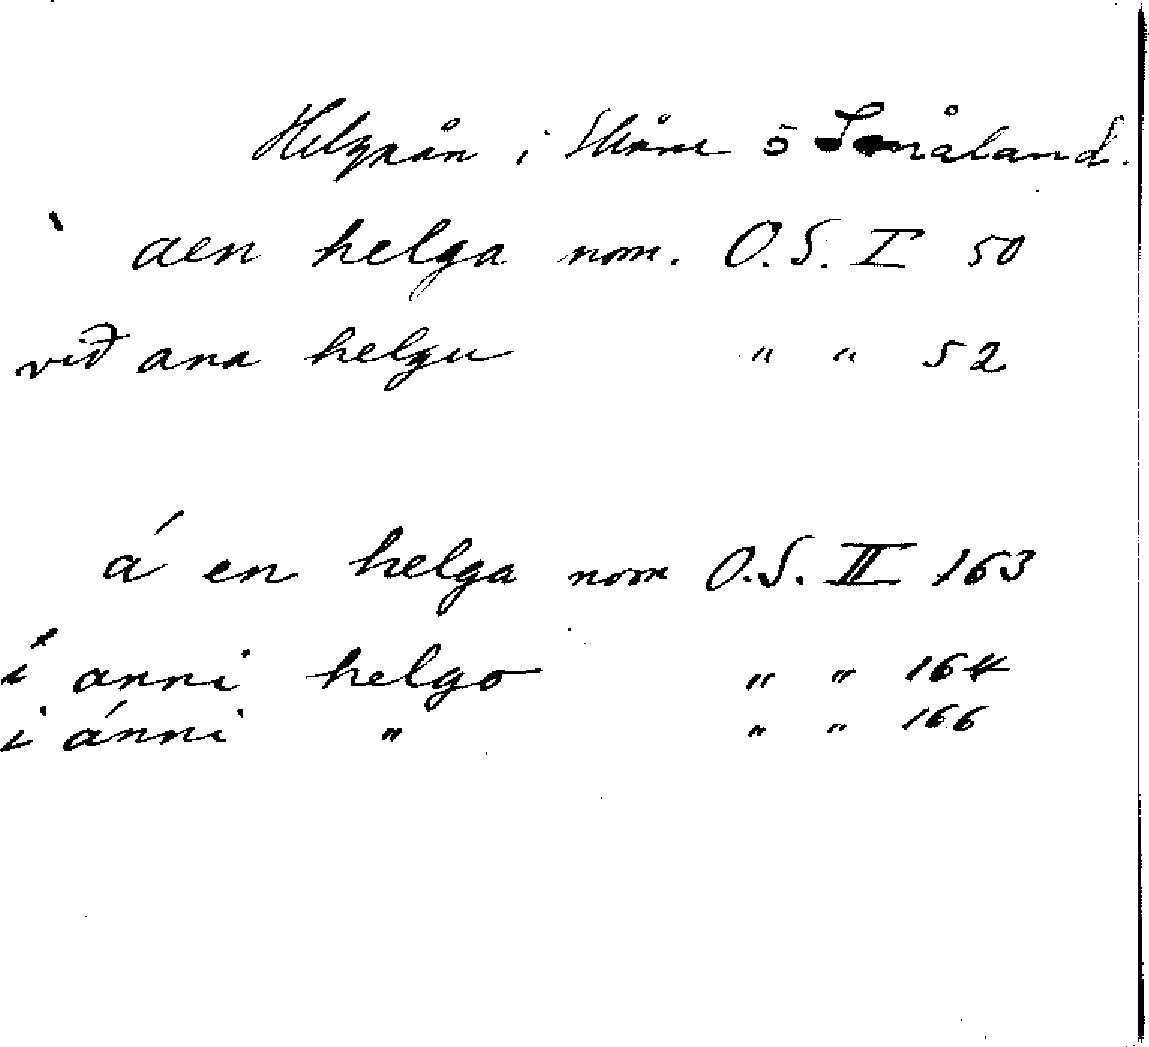 Helgeån i Skåne o Småland.
aen helga nom. O.S. I 50
við ana helgu " " 52
á en helga nom O.S. II 163
í anni helgo " " 164
i ánni " " " 166